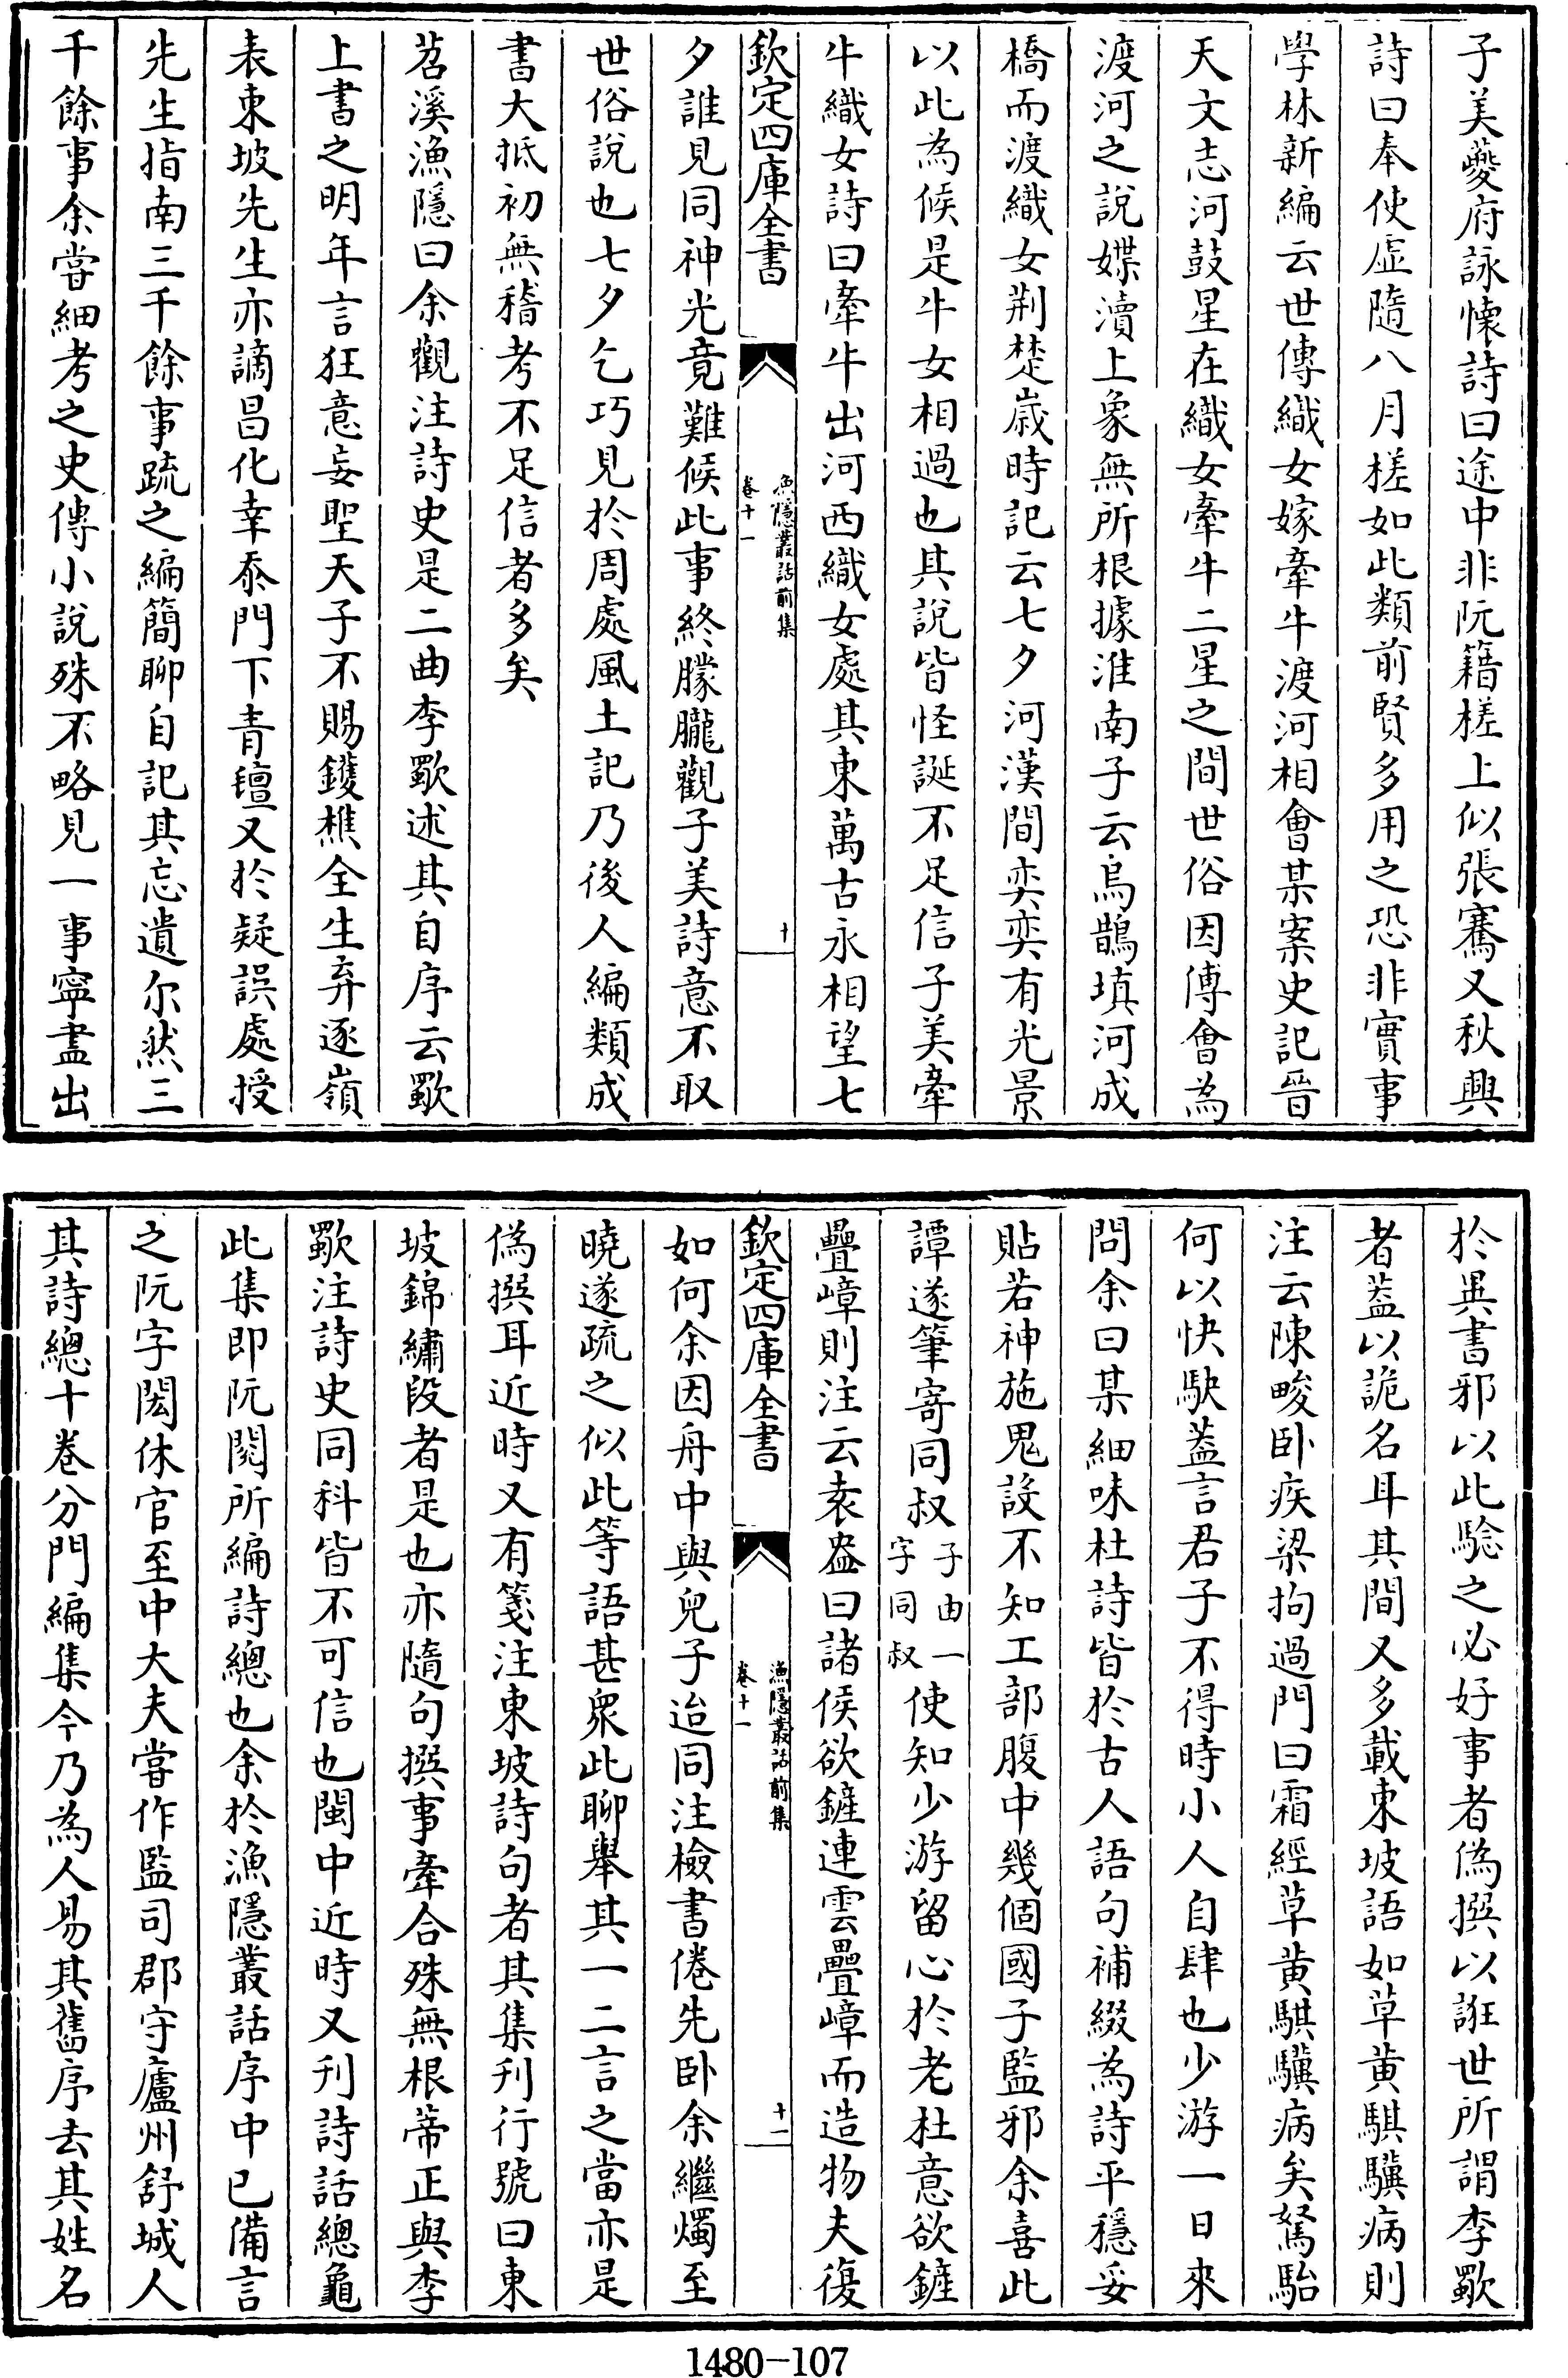 子美夔府詠懐詩曰途中非阮籍槎上似張騫又秋興
詩曰奉使虛隨八月槎如此類前賢多用之恐非實事
學林新編云世傳織女嫁牽牛渡河相會某案史記晉
天文志河鼓星在織女牽牛二星之間世俗因傅會為
渡河之說媟瀆上象無所根據淮南子云烏鵲填河成
橋而渡織女荆楚嵗時記云七夕河漢間奕奕有光景
以此為候是牛女相過也其說皆怪誕不足信子美牽
牛織女詩曰牽牛出河西織女處其東萬古永相望七
欽定四庫全書
漁隱叢話前集
卷十一
十
夕誰見同神光竟難候此事終朦朧觀子美詩意不取
世俗說也七夕乞巧見於周處風土記乃後人編類成
書大抵初無稽考不足信者多矣
苕溪漁隱曰余觀注詩史是二曲李歜述其自序云歜
上書之明年言狂意妄聖天子不賜鑊樵全生弃逐嶺
表東坡先生亦謫昌化幸忝門下青氊又於疑誤處授
先生指南三千餘事疏之編簡聊自記其忘遺尔然三
千餘事余嘗細考之史傳小說殊不略見一事寜盡出
於異書邪以此騐之必好事者偽撰以誑世所謂李歜
者葢以詭名耳其間又多載東坡語如草黄騏驥病則
注云陳畯卧疾梁拘過門曰霜經草黄騏驥病矣駑駘
何以快駃葢言君子不得時小人自肆也少游一日來
問余曰某細味杜詩皆於古人語句補綴為詩平穩妥
貼若神施鬼設不知工部腹中幾個國子監邪余喜此
譚遂筆寄同叔子由一字同叔使知少游留心於老杜意欲鏟
疊嶂則注云袁盎曰諸侯欲鏟連雲疊嶂而造物夫復
欽定四庫全書
漁隱叢話前集
卷十一
十一
如何余因舟中與兒子迨同注檢書倦先卧余繼燭至
曉遂疏之似此等語甚衆此聊舉其一二言之當亦是
偽撰耳近時又有箋注東坡詩句者其集刋行號曰東
坡錦繡段者是也亦隨句撰事牽合殊無根蒂正與李
歜注詩史同科皆不可信也閩中近時又刋詩話總龜
此集即阮閱所編詩總也余於漁隱叢話序中已備言
之阮字閎休官至中大夫嘗作監司郡守廬州舒城人
其詩總十卷分門編集今乃為人易其舊序去其姓名
1480-107